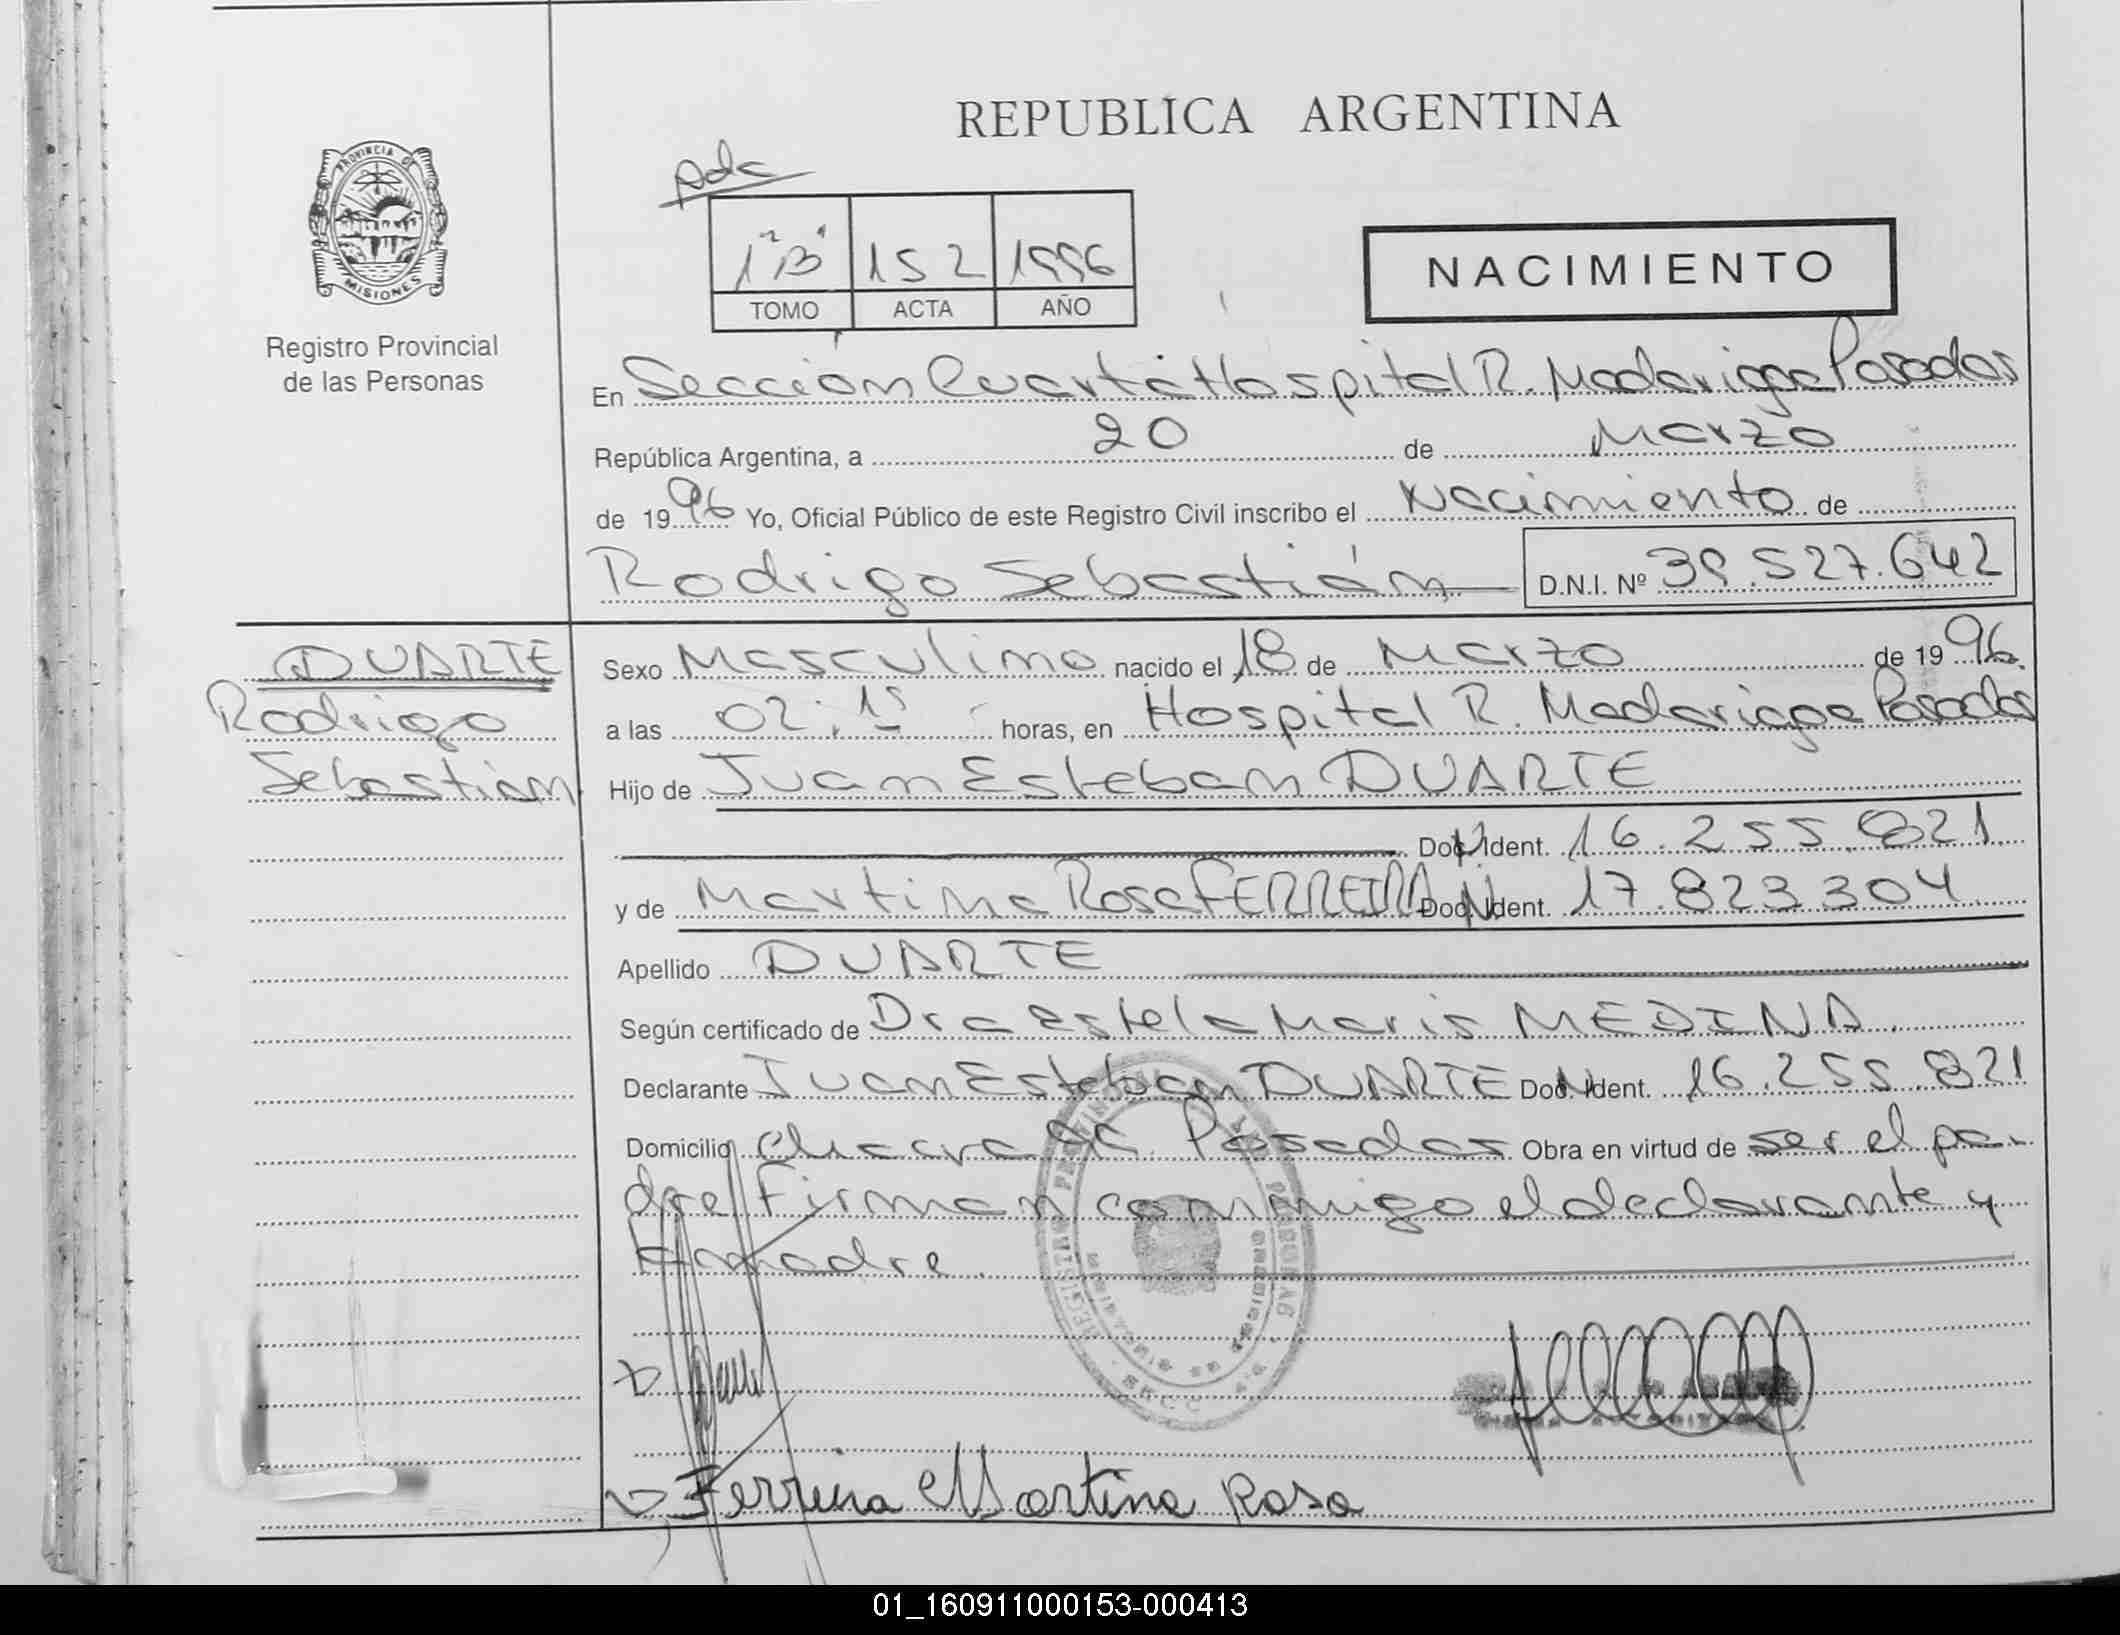 REPUBLICA ARGENTINA
PROVINCIA DE MISIONES
Registro Provincial
de las Personas
pdc
1 "B" 152 1996
TOMO ACTA AÑO
NACIMIENTO
En Sección Cuarta Hospital R. Madariaga Posadas
República Argentina, a 20 de Marzo
de 1996 Yo, Oficial Público de este Registro Civil inscribo el Nacimiento de
Rodrigo Sebastián D.N.I. Nº 39.527.642
DUARTE
Rodrigo
Sebastián
Sexo Masculino nacido el 18 de Marzo de 1996.
a las 02:15 horas, en Hospital R. Madariaga Posadas
Hijo de Juan Esteban DUARTE
Doc. Ident. 16.255.821
y de Martina Rosa FERREIRA Doc. Ident. 17.823.304
Apellido DUARTE
Según certificado de Dra Estela Maris MEDINA.
Declarante Juan Esteban DUARTE Doc. Ident. 16.255.821
Domicilio Posadas Obra en virtud de ser el pa-
dre Firman conmigo el declarante y
la madre.
REGISTRO PROVINCIAL DE LAS PERSONAS
Ferreira Martina Rosa
01_160911000153-000413